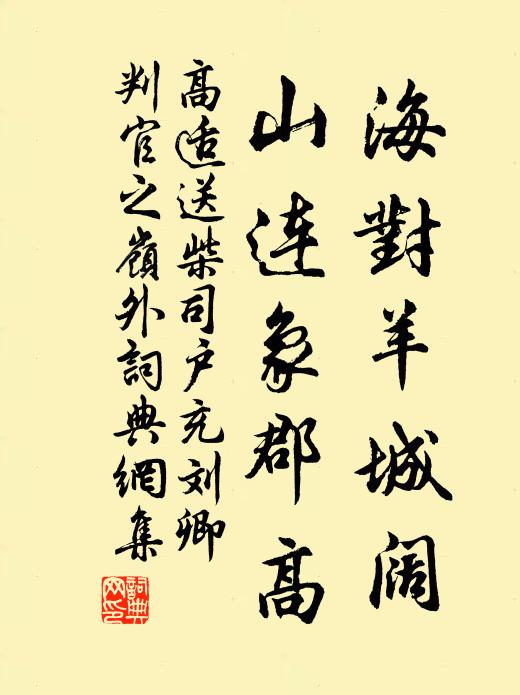 海對羊城阔
山連象郡高
高适送柴司户充刘卿
判官之嶺外詞典網集
詞典网印